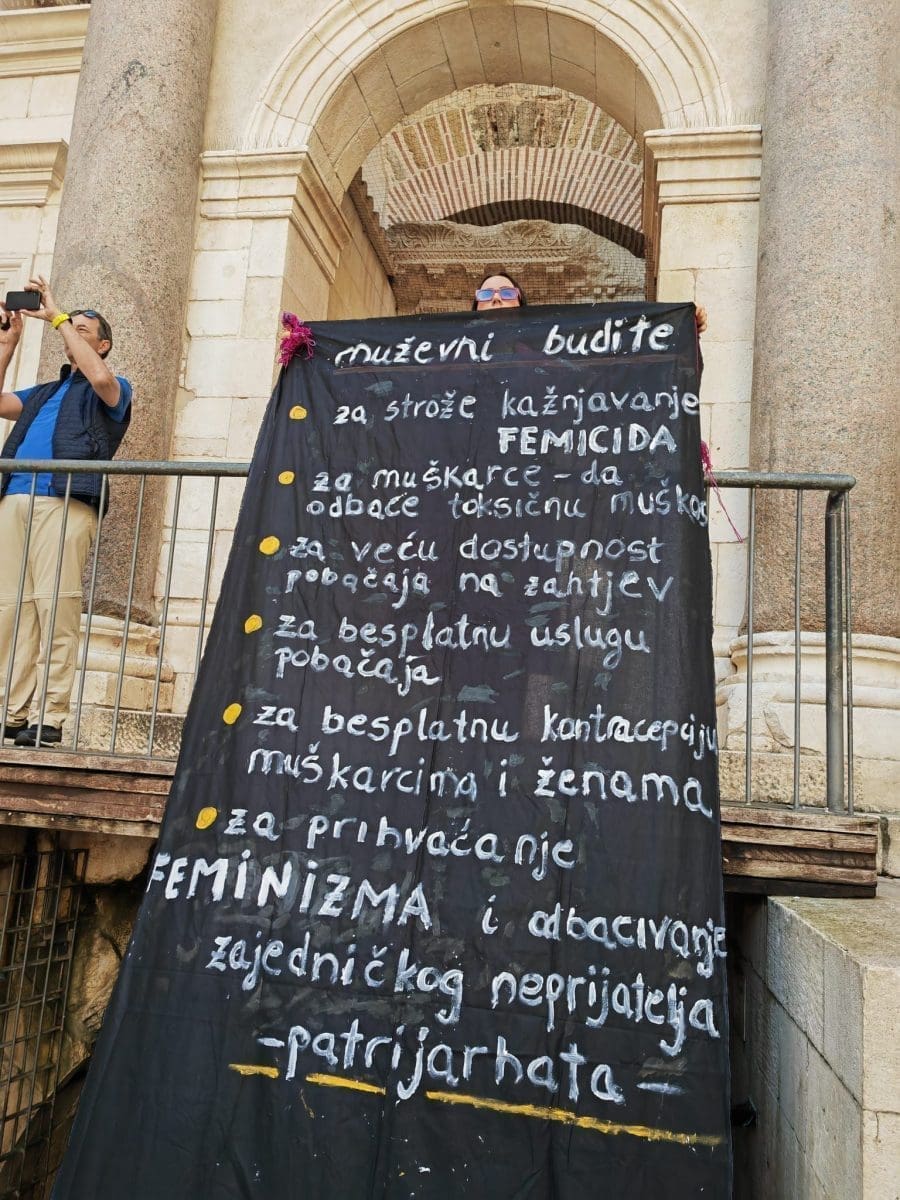 muževni budite
za strože kažnjavanje
FEMICIDA
za muškarce - da
odbace toksičnu muškos
za veću dostupnost
pobačaja na zahtjev
za besplatnu uslugu
pobačaja
za besplatnu kontracepciju
muškarcima i ženama
za prihvaćanje
FEMiNiZMA i odbacivanje
zajedničkog neprijatelja
-patrijarhata-